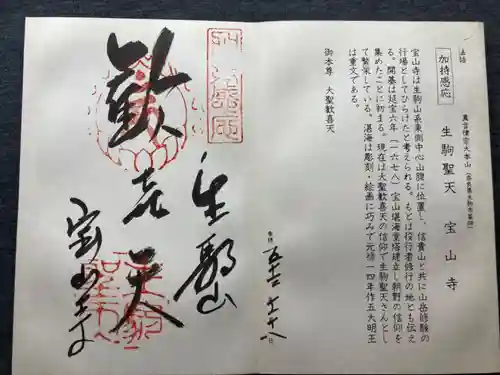 法話
加持感応
真言律宗大本山(奈良県生駒市菜畑)
生駒聖天 宝山寺
宝山寺は生駒山系東側中心山腹に位置し、信貴山と共に山岳修験の
行場としてひらけたと考えられる。もとは役行者修行の地とも伝え
る。開基は延宝六年(一六七八)宝山湛海堂塔建立し朝野の信仰を
集めたことに初まる。現在は大聖歓喜天の信仰で生駒聖天さんとし
て繁栄している。湛海は彫刻・絵画に巧みで元禄一四年作五大明王
は重文である。
御本尊 大聖歓喜天
生駒山
歓喜天
宝山寺